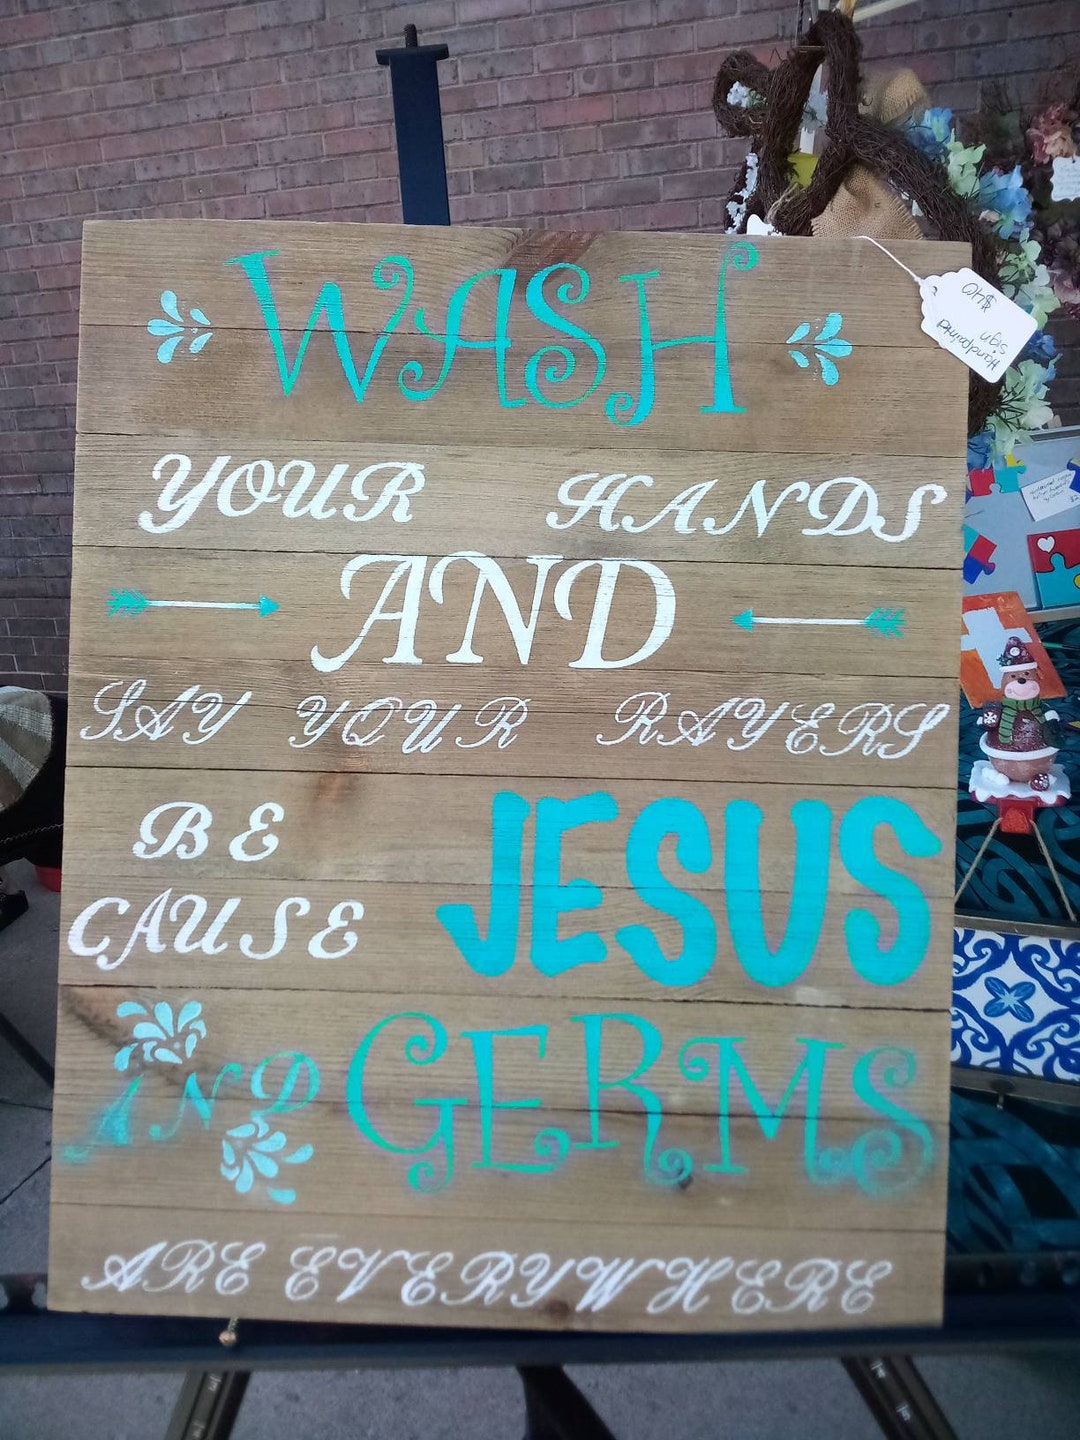 WASH
YOUR HANDS
AND
SAY YOUR RAYERS
BE
CAUSE
JESUS
AND GERMS
ARE EVERYWHERE
Handpainted
sign
$40